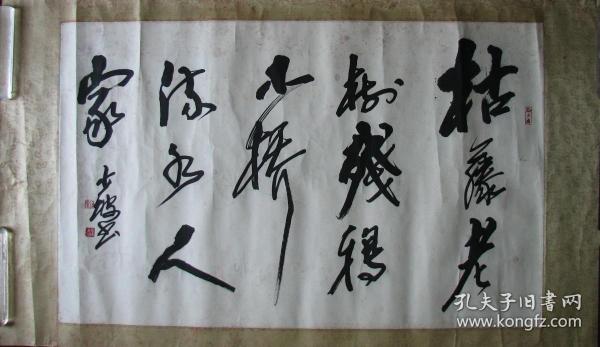 枯藤老
树残鸦
小桥
流水人
家
孔夫子旧书网
www.kongfz.com